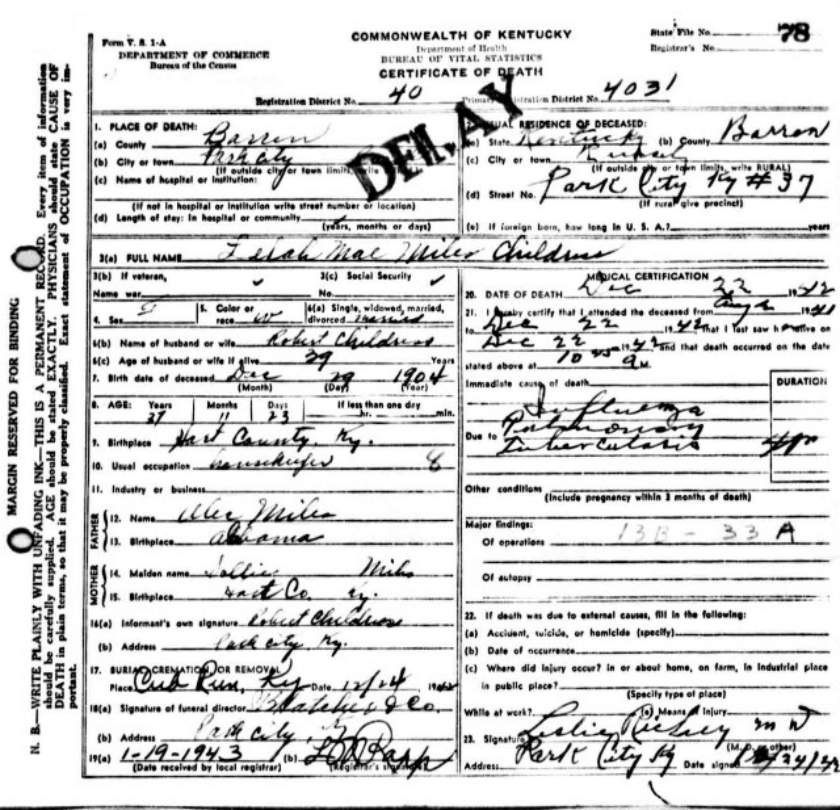 Form V. S. 1-A
DEPARTMENT OF COMMERCE
Bureau of the Census
COMMONWEALTH OF KENTUCKY
Department of Health
BUREAU OF VITAL STATISTICS
CERTIFICATE OF DEATH
State File No. 78
Registrar's No.
Registration District No. 40
Primary Registration District No. 4031
DELAY
MARGIN RESERVED FOR BINDING
N. B.—WRITE PLAINLY WITH UNFADING INK—THIS IS A PERMANENT RECORD. Every item of information
should be carefully supplied. AGE should be stated EXACTLY. PHYSICIANS should state CAUSE OF
DEATH in plain terms, so that it may be properly classified. Exact statement of OCCUPATION is very im-
portant.
1. PLACE OF DEATH:
(a) County Barren
(b) City or town Park City
(If outside city or town limits, write
(c) Name of hospital or institution:
(If not in hospital or institution write street number or location)
(d) Length of stay: In hospital or community
(years, months or days)
USUAL RESIDENCE OF DECEASED:
(a) State Kentucky (b) County Barren
(c) City or town
(If outside city or town limits, write RURAL)
(d) Street No. Park City Ky # 37
(If rural give precinct)
(e) If foreign born, how long in U. S. A.? years
3(a) FULL NAME Mae Miles Childress
3(b) If veteran,
Name war
3(c) Social Security
No.
4. Sex F
5. Color or
race W
6(a) Single, widowed, married,
divorced Married
6(b) Name of husband or wife Robert Childress
6(c) Age of husband or wife if alive 39 Years
7. Birth date of deceased Dec 29 1904
(Month) (Day) (Year)
8. AGE: Years Months Days If less than one day
37 11 23 hr. min.
9. Birthplace Hart County, Ky.
10. Usual occupation housekeeper 8
11. Industry or business
FATHER
12. Name Alec Miles
13. Birthplace Albama
MOTHER
14. Maiden name Sallie Miles
15. Birthplace Hart Co. Ky.
16(a) Informant's own signature Robert Childress
(b) Address Park city, Ky.
17. BURIAL, CREMATION, OR REMOVAL
Place Cub Run, Ky Date 12/24 1942
18(a) Signature of funeral director & Co.
(b) Address Park city,
19(a) 1-19-1943 (b)
(Date received by local registrar) (Registrar's signature)
MEDICAL CERTIFICATION
20. DATE OF DEATH Dec 22 1942
21. I hereby certify that I attended the deceased from Aug 1941
to Dec 22, 1942 that I last saw h alive on
Dec 22 1942 and that death occurred on the date
stated above at M.
Immediate cause of death
DURATION
Influenza
Due to Pulmonary
Tuberculosis
Other conditions
(Include pregnancy within 3 months of death)
Major findings:
Of operations 13B - 33 A
Of autopsy
22. If death was due to external causes, fill in the following:
(a) Accident, suicide, or homicide (specify)
(b) Date of occurrence
(c) Where did injury occur? in or about home, on farm, in industrial place
in public place?
(Specify type of place)
While at work? (e) Means of injury
23. Signature Leslie M D
(M. D. or other)
Address Park City Ky Date signed 12/24/42